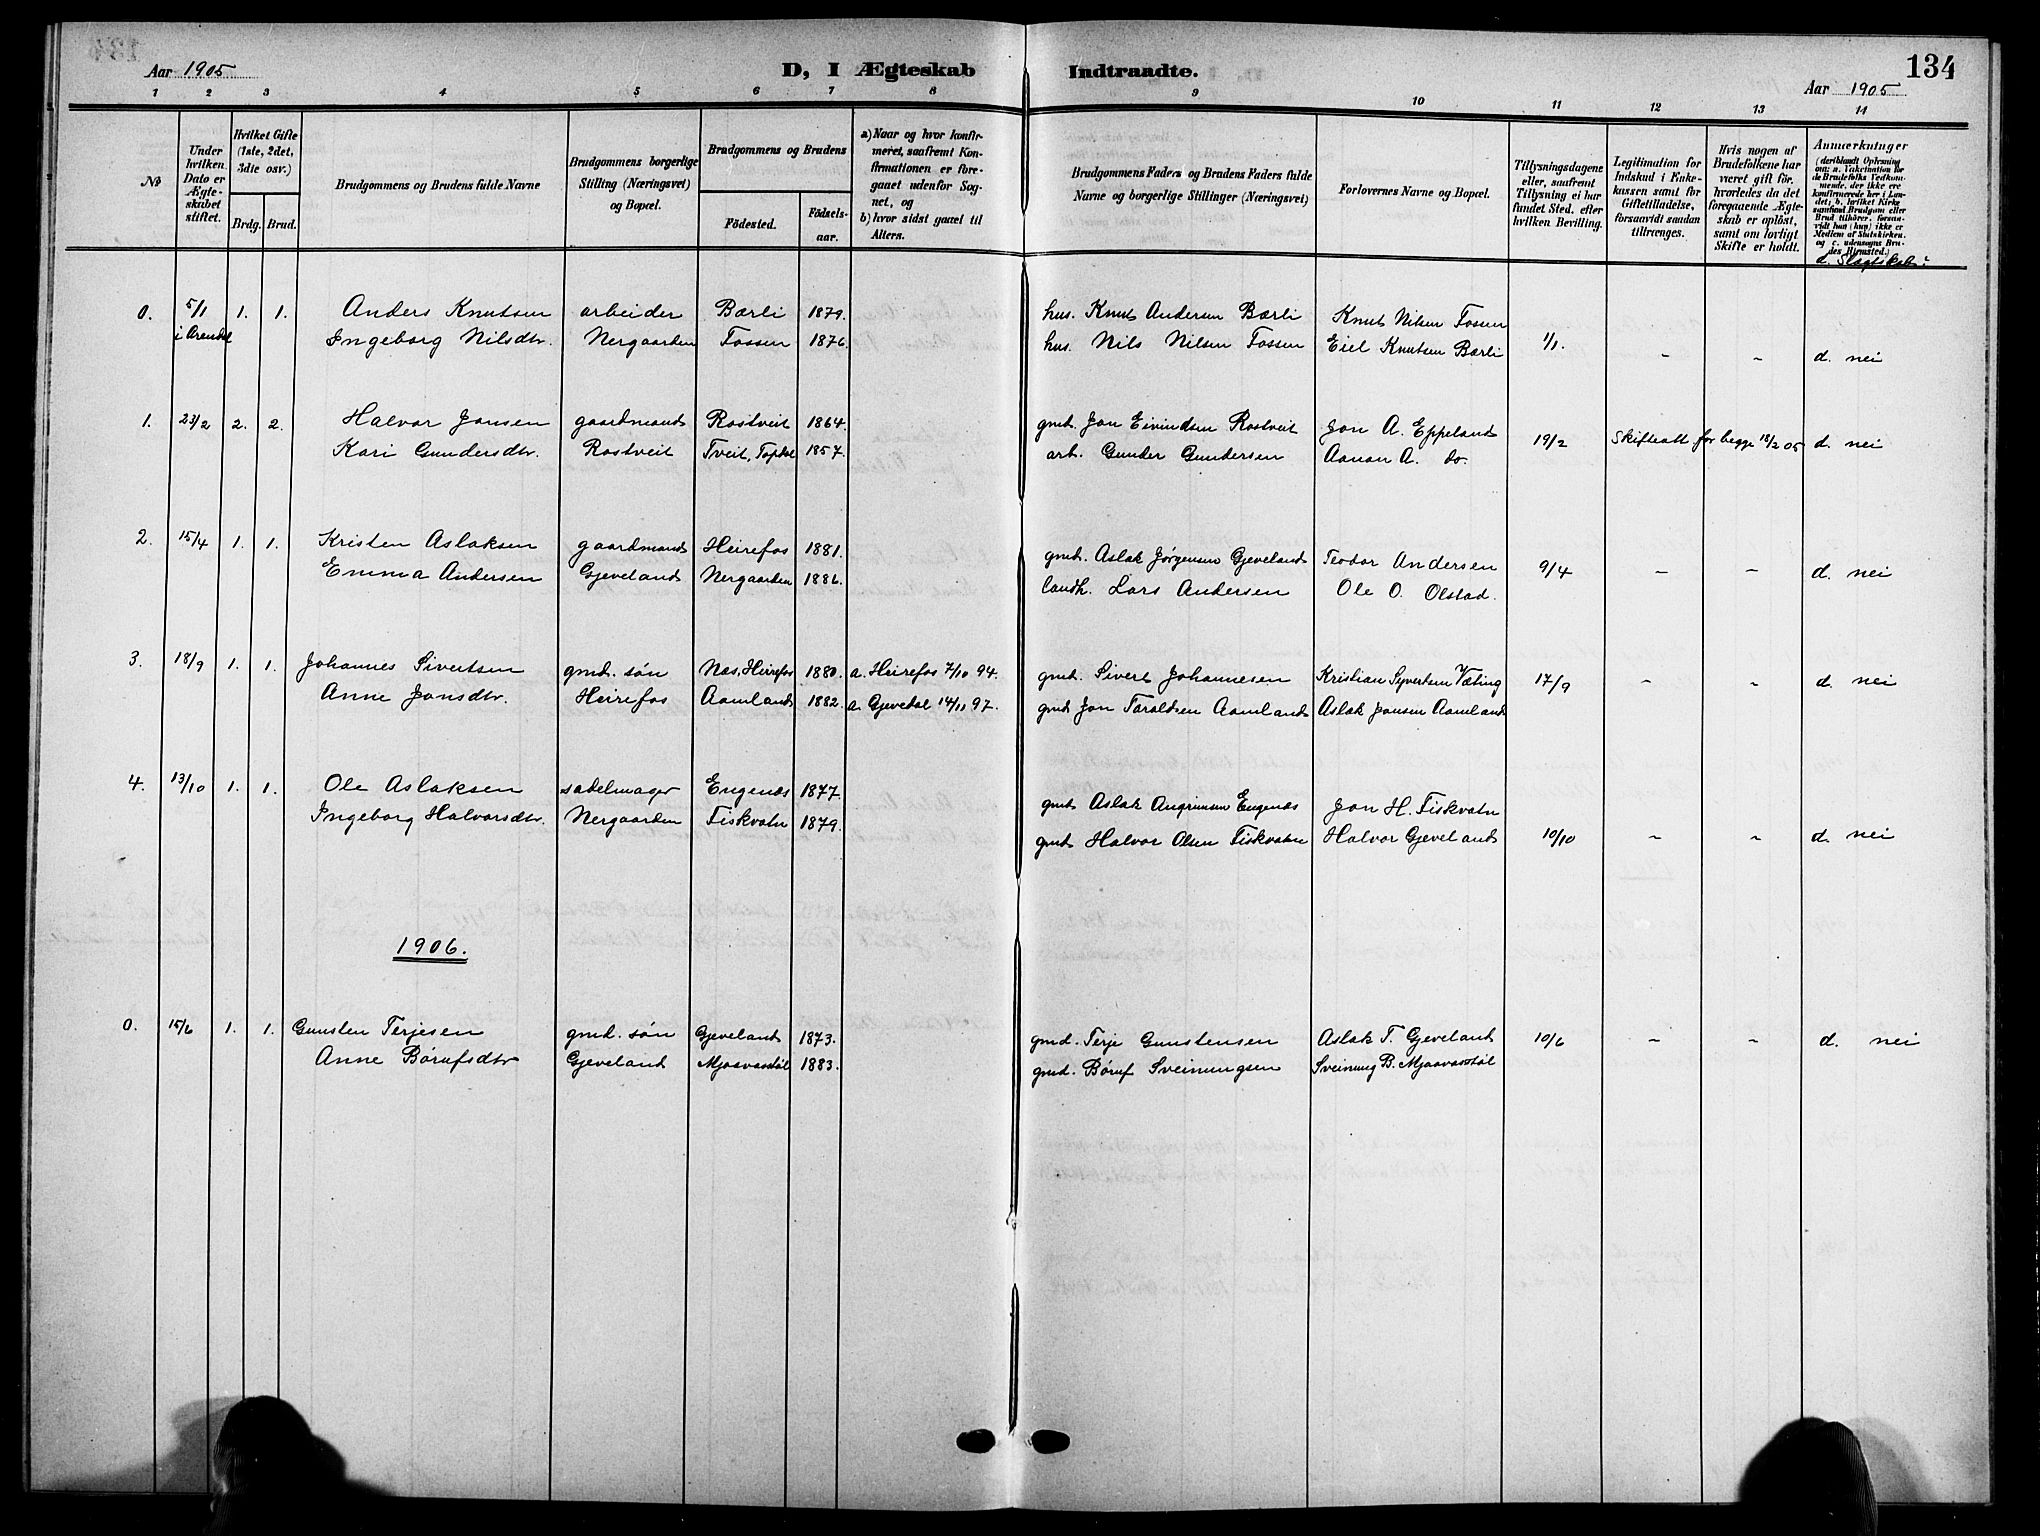 134
Aar 1905
D, I Ægteskab Indtraadte.
Aar 1905
1 2 3 4 5 6 7 8 9 10 11 12 13 14
№
Under hvilken Dato er Ægteskabet stiftet.
Hvilket Gifte (1ste, 2det, 3die osv.)
Brdg. Brud.
Brudgommens og Brudens fulde Navne
Brudgommens borgerlige Stilling (Næringsvei) og Bopæl.
Brudgommens og Brudens
Födested.
Födsels-aar.
a) Naar og hvor konfirmeret, saafremt Konfirmationen er foregaaet udenfor Sognet, og
b) hvor sidst gaaet til Alters.
Brudgommens Faders og Brudens Faders fulde Navne og borgerlige Stillinger (Næringsvei)
Forlovernes Navne og Bopæl.
Tillysningsdagene eller, saafremt Tillysning ei har fundet Sted, efter hvilken Bevilling.
Legitimation for Indskud i Enkekassen samt for Giftetilladelse, forsaavidt saadan tiltrænges.
Hvis nogen af Brudefolkene har været gift før, hvorledes da det foregaaende Ægteskab er opløst, samt om lovligt Skifte er holdt.
Anmærkninger
(deriblandt Oplysning om: a. Vakcination for de Brudefolks Vedkommende, der ikke ere konfirmerede her i Landet; b. hvilket Kirkesamfund Brudgom eller Brud tilhører, forsaavidt han (hun) ikke er Medlem af Statskirken, og c. udensogns Brudes Hjemsted.)
d. Slægtskab:
0. 5/1 i Arendal 1. 1. Anders Knutsen arbeider Bærli 1879. hus. Knut Andersen Bærli Knut Nilsen Fossen
Ingeborg Nilsdtr. Nergaarden Fossen 1876. hus. Nils Nilsen Fossen Eiel Knutsen Bærli 1/1. - - d. nei
1. 23/2 2. 2. Halvor Jonsen gaardmand Rostveit 1864. gmd. Jon Eivindsen Rostveit Jon A. Eppeland
Kari Gundersdtr. Rostveit Tveit, Topdal 1857. arb. Gunder Gundersen Aanon A. do. 19/2 Skifteatt for begge 18/2 05 d. nei
2. 15/4 1. 1. Kristen Aslaksen gaardmand Heirefos 1881. gmd. Aslak Jørgensen Gjeveland Teodor Andersen
Emma Andersen Gjeveland Nergaarden 1886. landh. Lars Andersen Ole O. Olstad. 9/4 - - d. nei
3. 18/9 1. 1. Johannes Sivertsen gmd. søn Næs, Heirefos 1880. a. Heirefos 7/10 94. gmd. Sivert Johannesen Kristian Syvertsen Væting 17/9 - - d. nei
Anne Jonsdtr. Heirefos Aamland 1882. a. Gjevedal 14/11 97. gmd Jon Taraldsen Aamland Aslak Jonsen Aamland
4. 13/10 1. 1. Ole Aslaksen sadelmager Engenæs 1877. gmd Aslak Angrimsen Engenæs Jon H. Fiskvatn
Ingeborg Halvorsdtr. Nergaarden Fiskvatn 1879. gmd Halvor Olsen Fiskvatn Halvor Gjeveland 10/10 - - d. nei
1906.
0. 15/6 1. 1. Gunsten Terjesen gmd. søn Gjeveland 1873. gmd. Terje Gunstensen Aslak T. Gjeveland 10/6 - - d. nei
Anne Børufsdtr Gjeveland Mjaavasstøl 1883. gmd. Børuf Sveinungsen Sveinung B. Mjaavasstøl